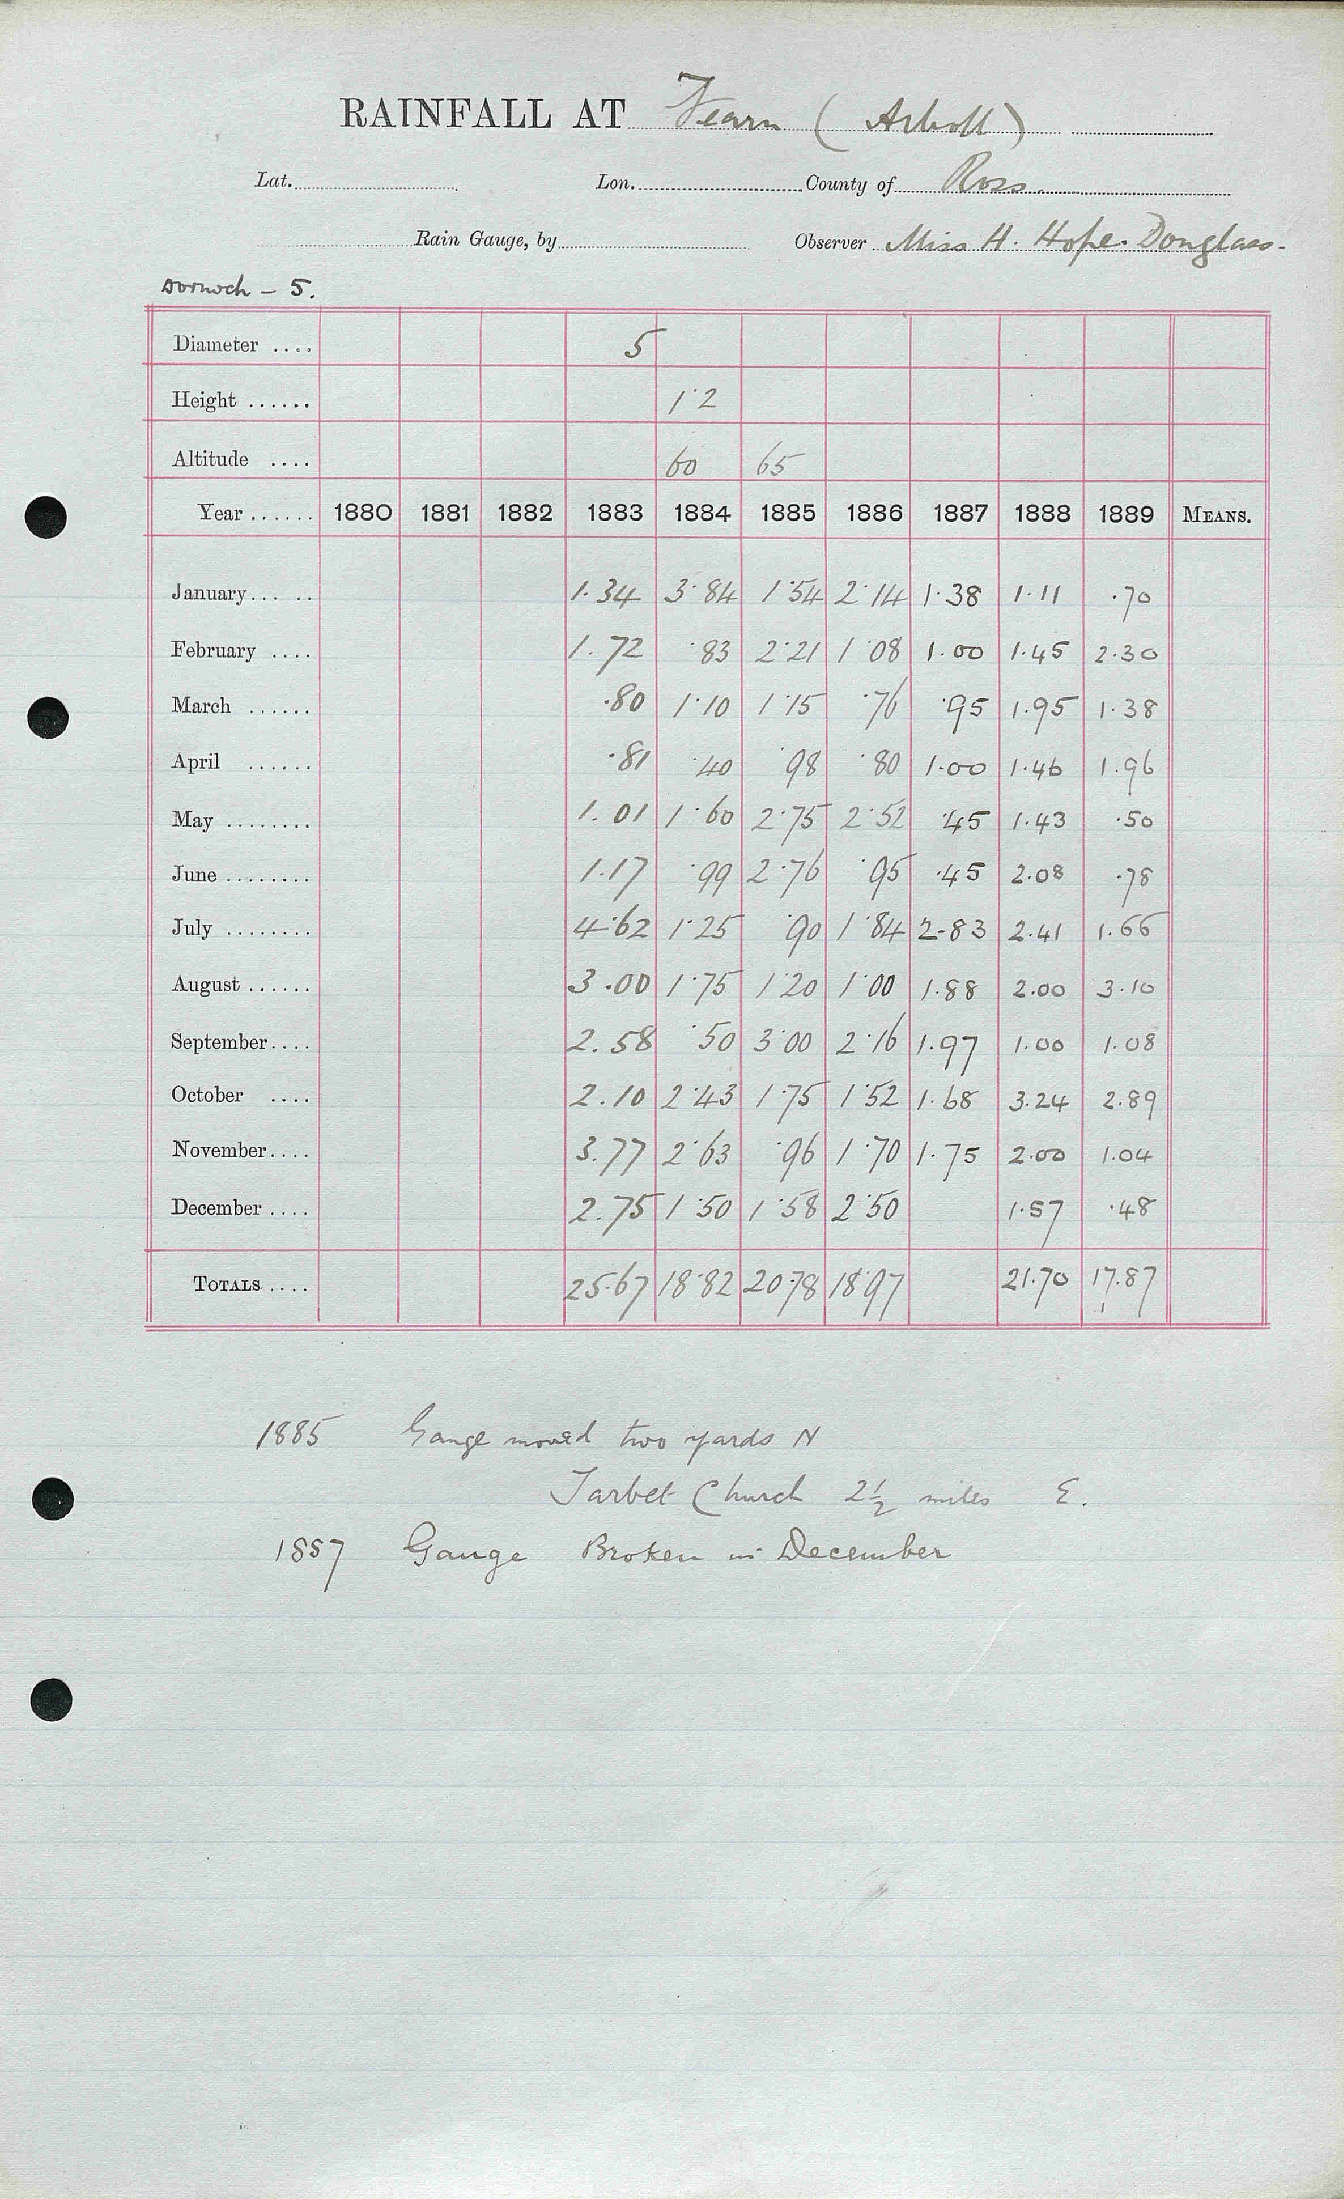 RAINFALL AT Fearn (Arboll)
Lat. Lon. County of Ross
Rain Gauge, by Observer Miss H. Hope. Donglass.
Dornoch – 5.
Diameter .... 5
Height ...... 1·2
Altitude .... 60 65
Year ...... 1880 1881 1882 1883 1884 1885 1886 1887 1888 1889 MEANS.
January... .. 1.34 3·84 1·54 2·14 1·38 1·11 ·70
February .... 1.72 ·83 2·21 1·08 1·00 1·45 2·30
March ...... ·80 1·10 1·15 ·76 ·95 1·95 1·38
April ...... ·81 ·40 ·98 ·80 1·00 1·46 1·96
May ........ 1.01 1·60 2·75 2·52 ·45 1·43 ·50
June ........ 1.17 ·99 2·76 ·95 ·45 2·08 ·78
July ........ 4·62 1·25 ·90 1·84 2·83 2·41 1·66
August ...... 3·00 1·75 1·20 1·00 1·88 2·00 3·10
September.... 2.58 ·50 3·00 2·16 1·97 1·00 1·08
October .... 2.10 2·43 1·75 1·52 1·68 3·24 2·89
November.... 3.77 2·63 ·96 1·70 1·75 2·00 1·04
December .... 2.75 1·50 1·58 2·50 1·57 ·48
TOTALS .... 25·67 18·82 20·78 18·97 21·70 17·87
1885 Gauge moved two yards N
Tarbet Church 2½ miles E.
1887 Gauge Broken in December